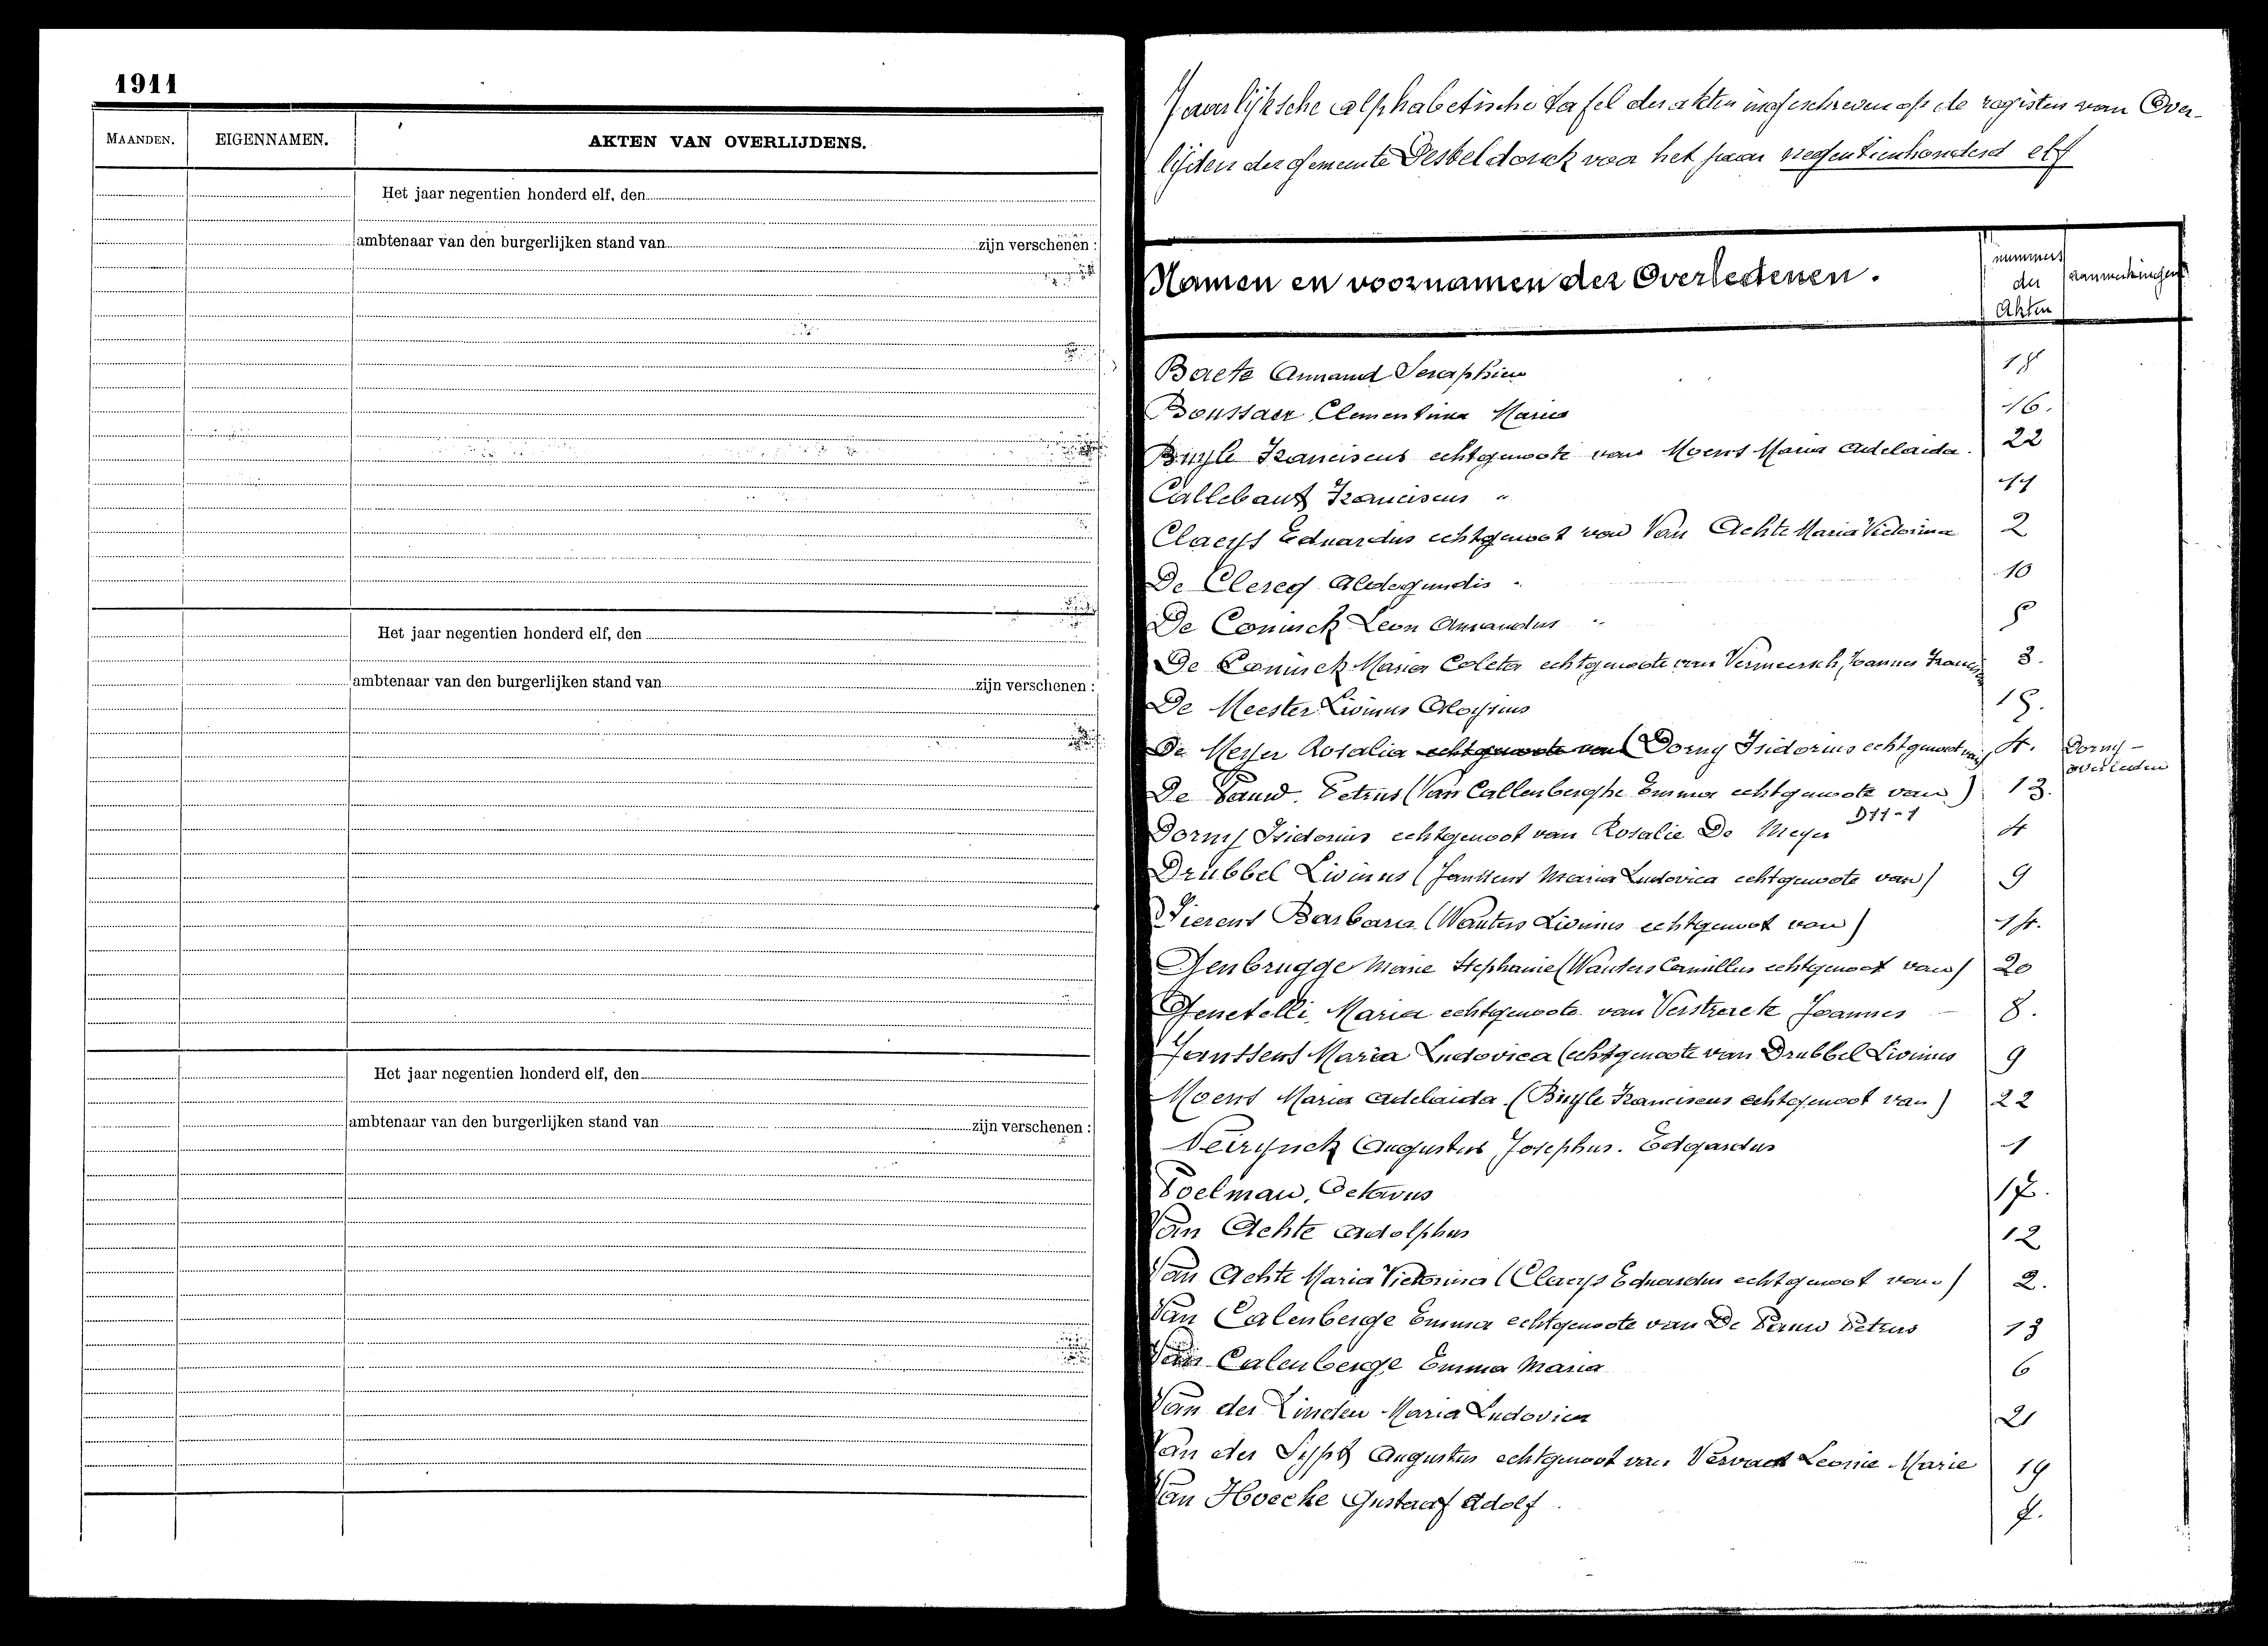 1911
MAANDEN. EIGENNAMEN. AKTEN VAN OVERLIJDENS.
Het jaar negentien honderd elf, den
ambtenaar van den burgerlijken stand van zijn verschenen :
Het jaar negentien honderd elf, den
ambtenaar van den burgerlijken stand van zijn verschenen :
Het jaar negentien honderd elf, den
ambtenaar van den burgerlijken stand van zijn verschenen :
Jaarlijksche alphabetische tafel der akten ingeschreven op de registers van Over-
lijden der gemeente Desteldonck voor het jaar negentienhonderd elf
Namen en voornamen der Overledenen. nummers der Akten aanmerkingen
Baete Armand Seraphien 18
Boussaer Clementina Maria 16.
Buyle Franciscus echtgenoote van Moens Maria Adelaida. 22
Callebaut Franciscus " 11
Claeys Eduardus echtgenoot van Van Achte Maria Victorina 2
De Clercq Aldegundis 10
De Coninck Leon Amandus 5
De Coninck Maria Coleta echtgenoote van Vermeersch, Joannes 3.
De Meester Livinus Aloysius 15.
De Meyer Rosalia echtgenoote van (Dorny Isidorius echtgenoot van) 4. Dorny -
overleden
De Pauw. Petrus (Van Callenberghe Emma echtgenoote van) 13.
Dorny Isidorius echtgenoot van Rosalie De Meyer D11-1 4
Drubbel Livinus (Janssens Maria Ludovica echtgenoote van) 9
Fierens Barbara (Wauters Livinus echtgenoot van) 14.
Genbrugge Marie Stephanie (Wauters Camillus echtgenoot van) 20
Genetelli, Maria echtgenoote van Verstraete Joannes 8.
Janssens Maria Ludovica (echtgenoote van Drubbel Livinus 9
Moens Maria Adelaida. (Buyle Franciscus echtgenoot van) 22
Neirynck Augustus Josephus. Edgardus 1
Poelman, Octavus 17.
Van Achte Adolphus 12
Van Achte Maria Victorina (Claeys Eduardus echtgenoot van) 2.
Van Calenberge Emma echtgenoote van De Pauw Petrus 13
Van Calenberge Emma Maria 6
Van der Linden Maria Ludovica 21
Van der Sypt Augustus echtgenoot van Vervaet Leonie Marie 19
Van Hoecke Gustaaf Adolf. 7.